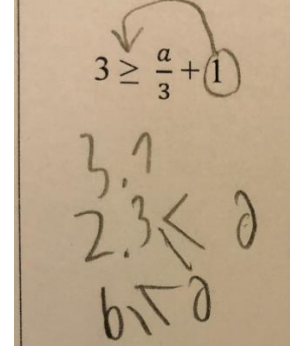 3 ≥ a/3 + 1
3.1
2.3 < a
6 < a